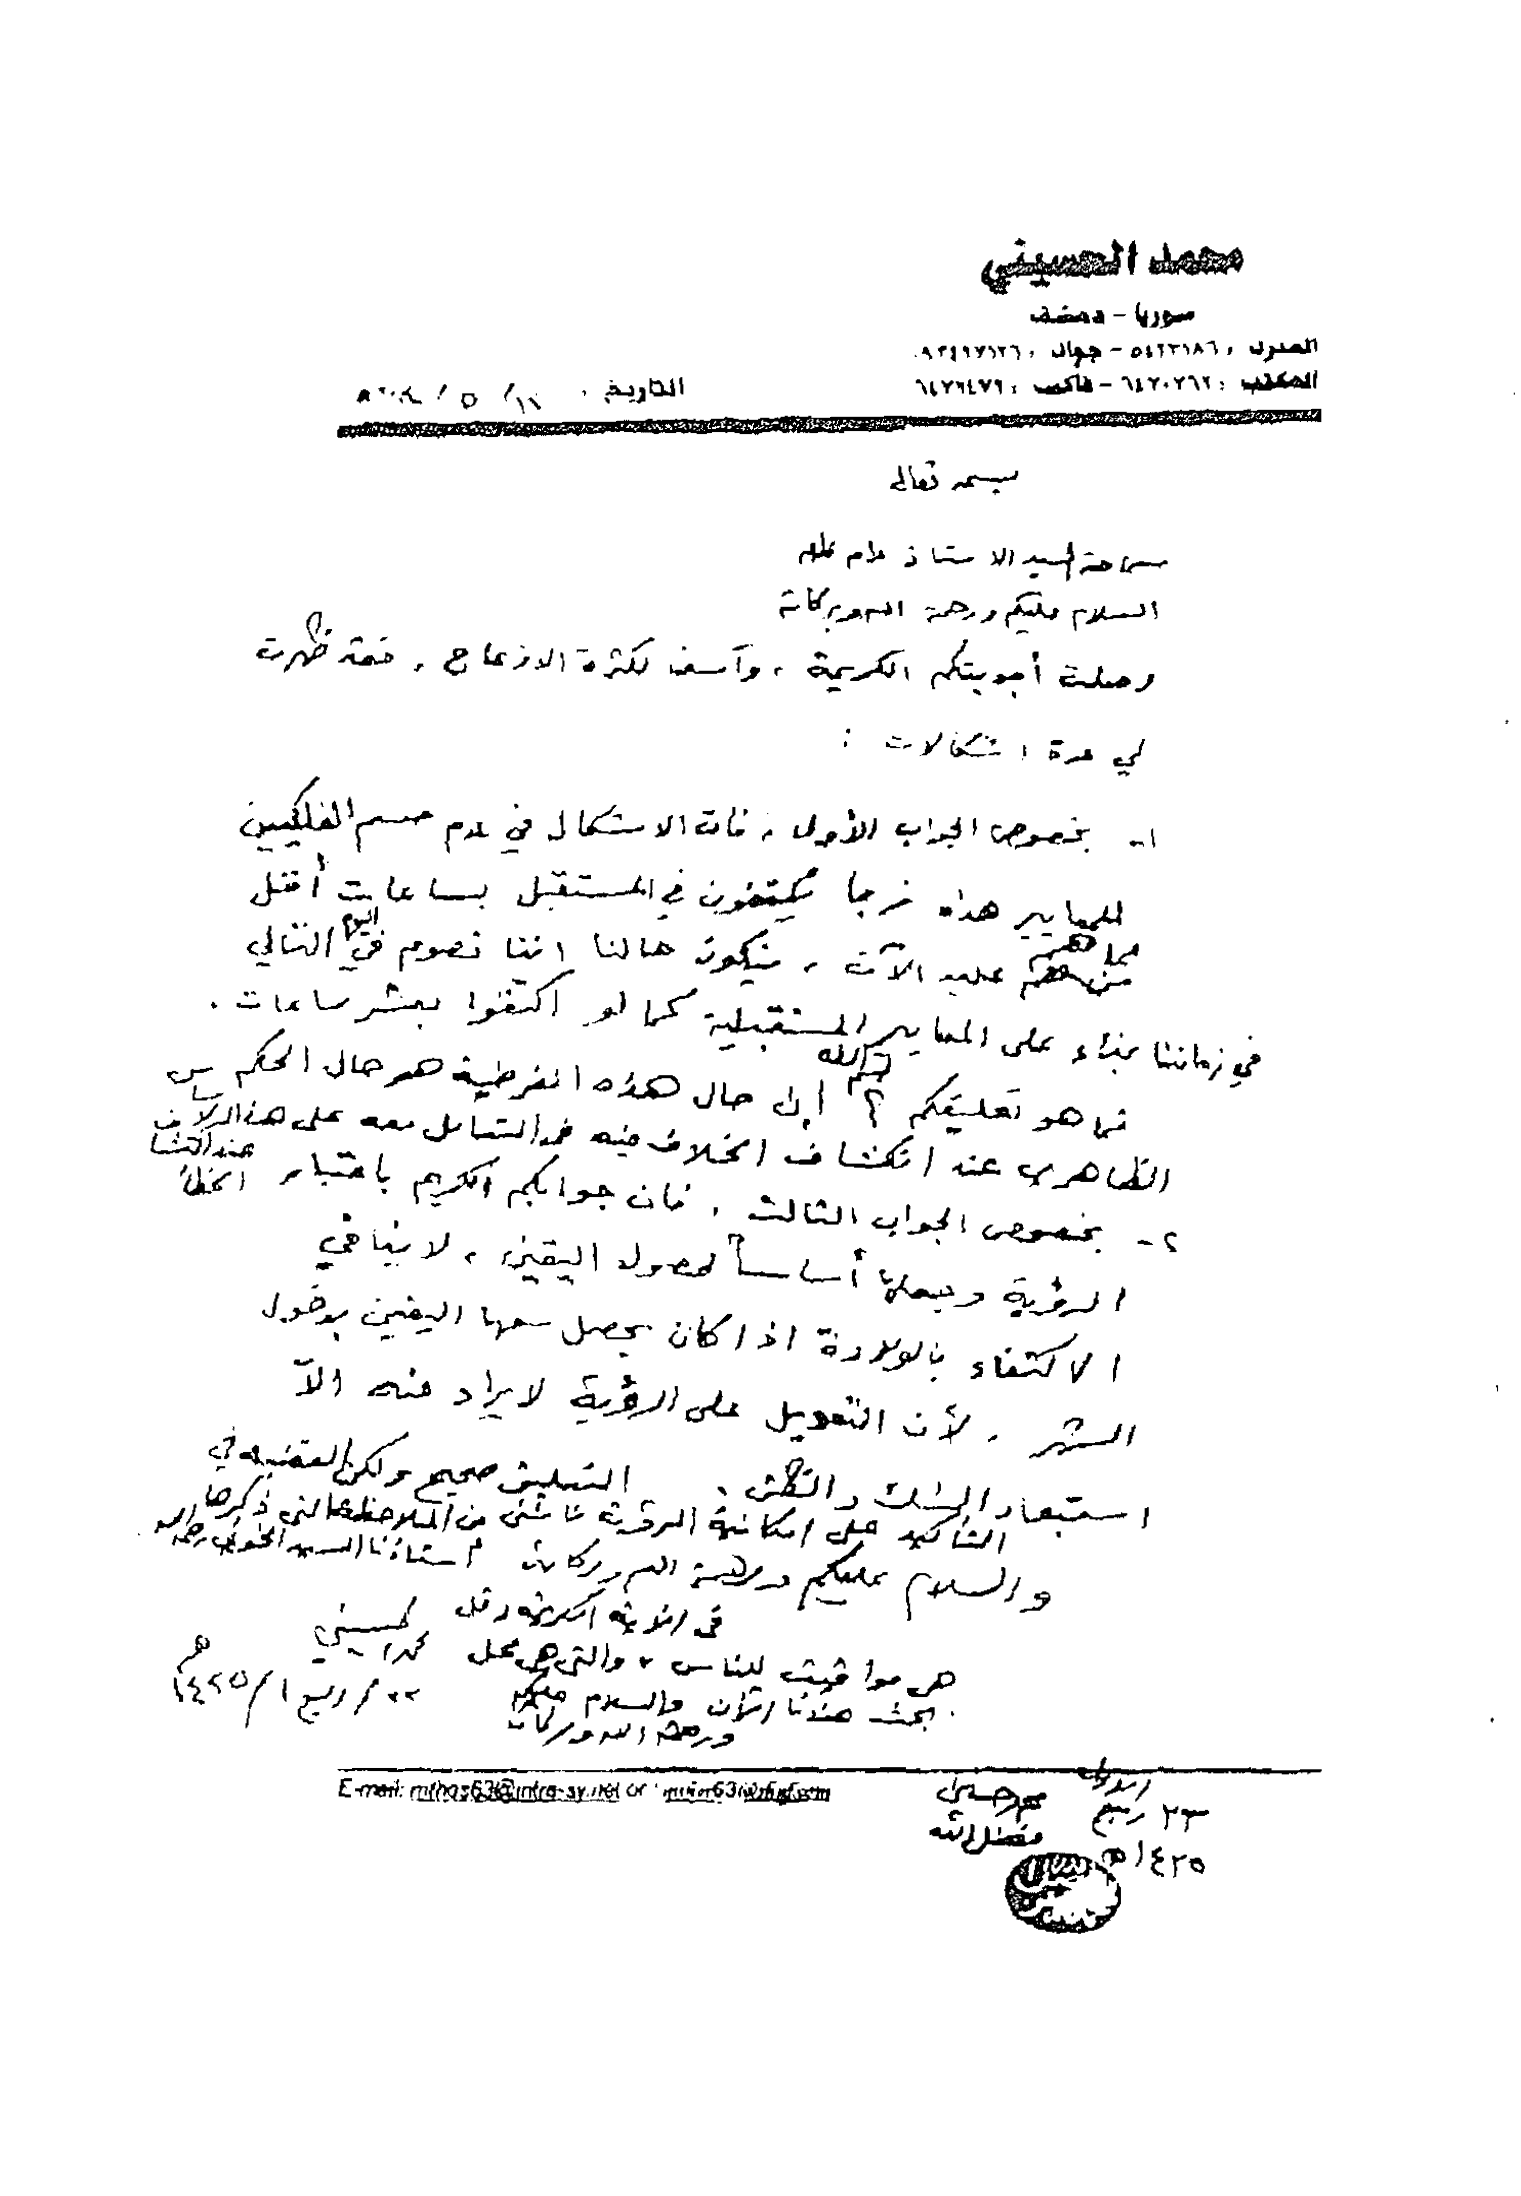 محمد الحسيني
سوريا - دمشق
المنزل : ٥٤٢٣١٨٦ - جوال : ٠٩٣٤٩٧١٢٦
المكتب : ٦٤٢٠٧٦٢ - فاكس : ٦٤٧٦٤٧٩
التاريخ :
بسمه تعالى
سماحة السيد الاستاذ دام ظله
السلام عليكم ورحمة الله وبركاته
وصلت أجوبتكم الكريمة ، وآسف لكثرة الازعاج ، فقد ظهرت
لي عدة اشكالات :
١- بخصوص الجواب الأول ، فان الاشكال في عدم حسم الفلكيين
للمعايير هذه فربما يكتفون في المستقبل بساعات أقل
مما هم عليه الآن ، فيكون حالنا اننا نصوم في اليوم التالي
في زماننا بناء على المعايير المستقبلية كما لو اكتفوا بعشر ساعات .
فما هو تعليقكم ؟
إن حال هذه الفرضية هو حال الحكم
الظاهري عند انكشاف الخلاف فيه فالتعامل معه على هذا الأساس
عند اكتشاف الخطأ
٢- بخصوص الجواب الثالث ، فان جوابكم الكريم باعتبار
الرؤية وجعلها أساساً لحصول اليقين ، لا ينافي
الاكتفاء بالولادة اذا كان يحصل معها اليقين بدخول
الشهر ، لأن التعويل على الرؤية لا يراد منه الاّ
استبعاد الشك والظن .
التعليق صحيح ولكن القضية في
التأكيد على امكانية الرؤية ناشئ من الملاحظة التي ذكرها
أستاذنا السيد الخوئي رحمه الله
والسلام عليكم ورحمة الله وبركاته
محمد الحسيني
٢٢/ ربيع ١/ ١٤٢٥ هـ
في الآية الكريمة قل
هي مواقيت للناس ، والتي هي محل
بحث عندنا الآن والسلام عليكم
ورحمة الله وبركاته
محمد حسين
فضل الله
٢٣ ربيع الأول
١٤٢٥ هـ